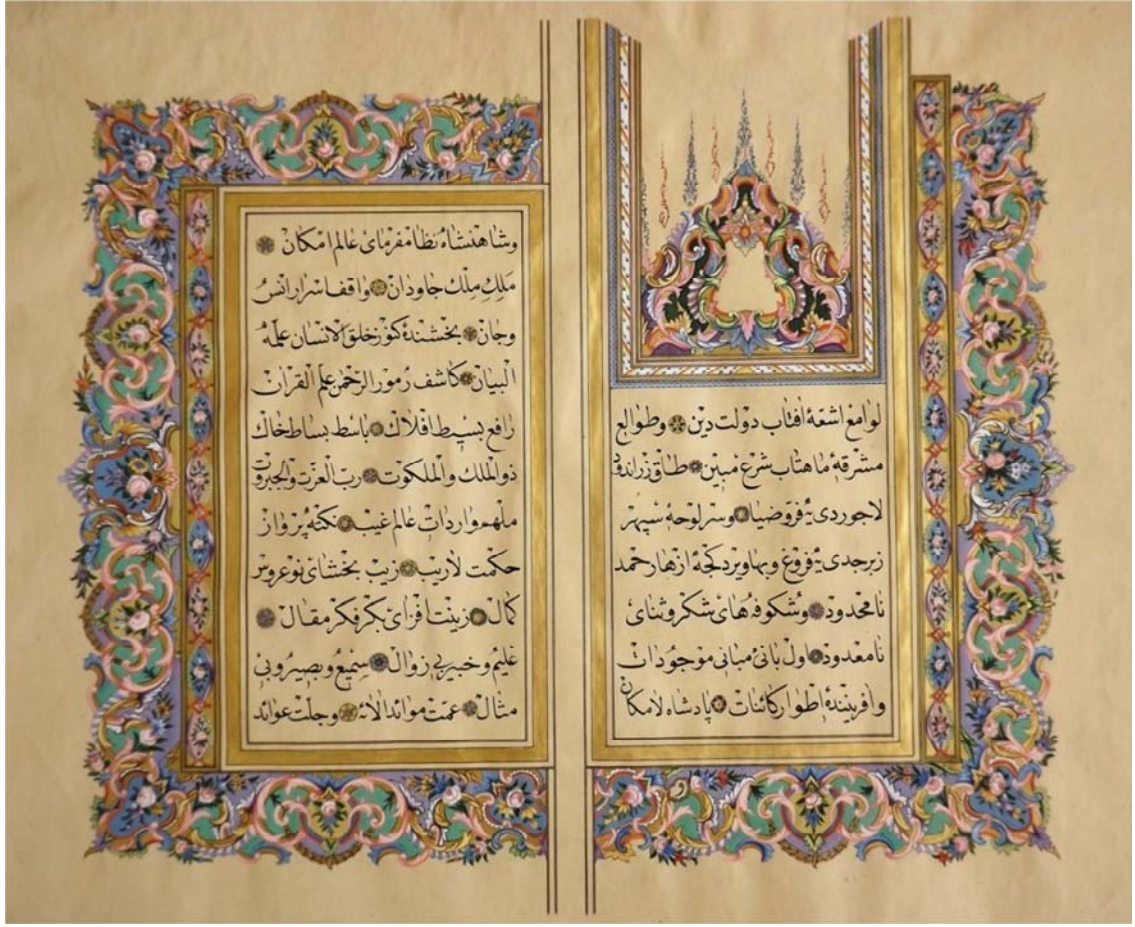 لوامع اشعهٔ افتاب دولت دین وطوالع
مشرقهٔ ماهتاب شرع مبین طاق زراندود
لاجوردی یه فروضیا وسرلوحهٔ سپهر
زبرجدی یه فروغ وبها ویرد کجهٔ ازهار حمد
نامحدود وشکوفه‌های شکر وثنای
نامعدود اول بانئ مبانی موجودات
وافرینندهٔ اطوار کائنات پادشاه لامکان
وشاهنشاه نظام‌فرمای عالم امکان
مَلِكِ مِلْك جاودان واقف اسرار انس
وجان بخشندهٔ کنوز خلق الانسان علمه
البیان کاشف رموز الرحمن علم القران
رافع بسیط افلاك باسط بساط خاك
ذو الملك والملكوت رب العزت والجبروت
ملهم واردات عالم غیب نکته پرواز
حکمت لاریب زیب بخشای نوعروس
کمال زینت افزای بکر فکر مقال
علیم وخبیر بی زوال سمیع وبصیر وبی
مثال عمت موائد الائه وجلت عوائد